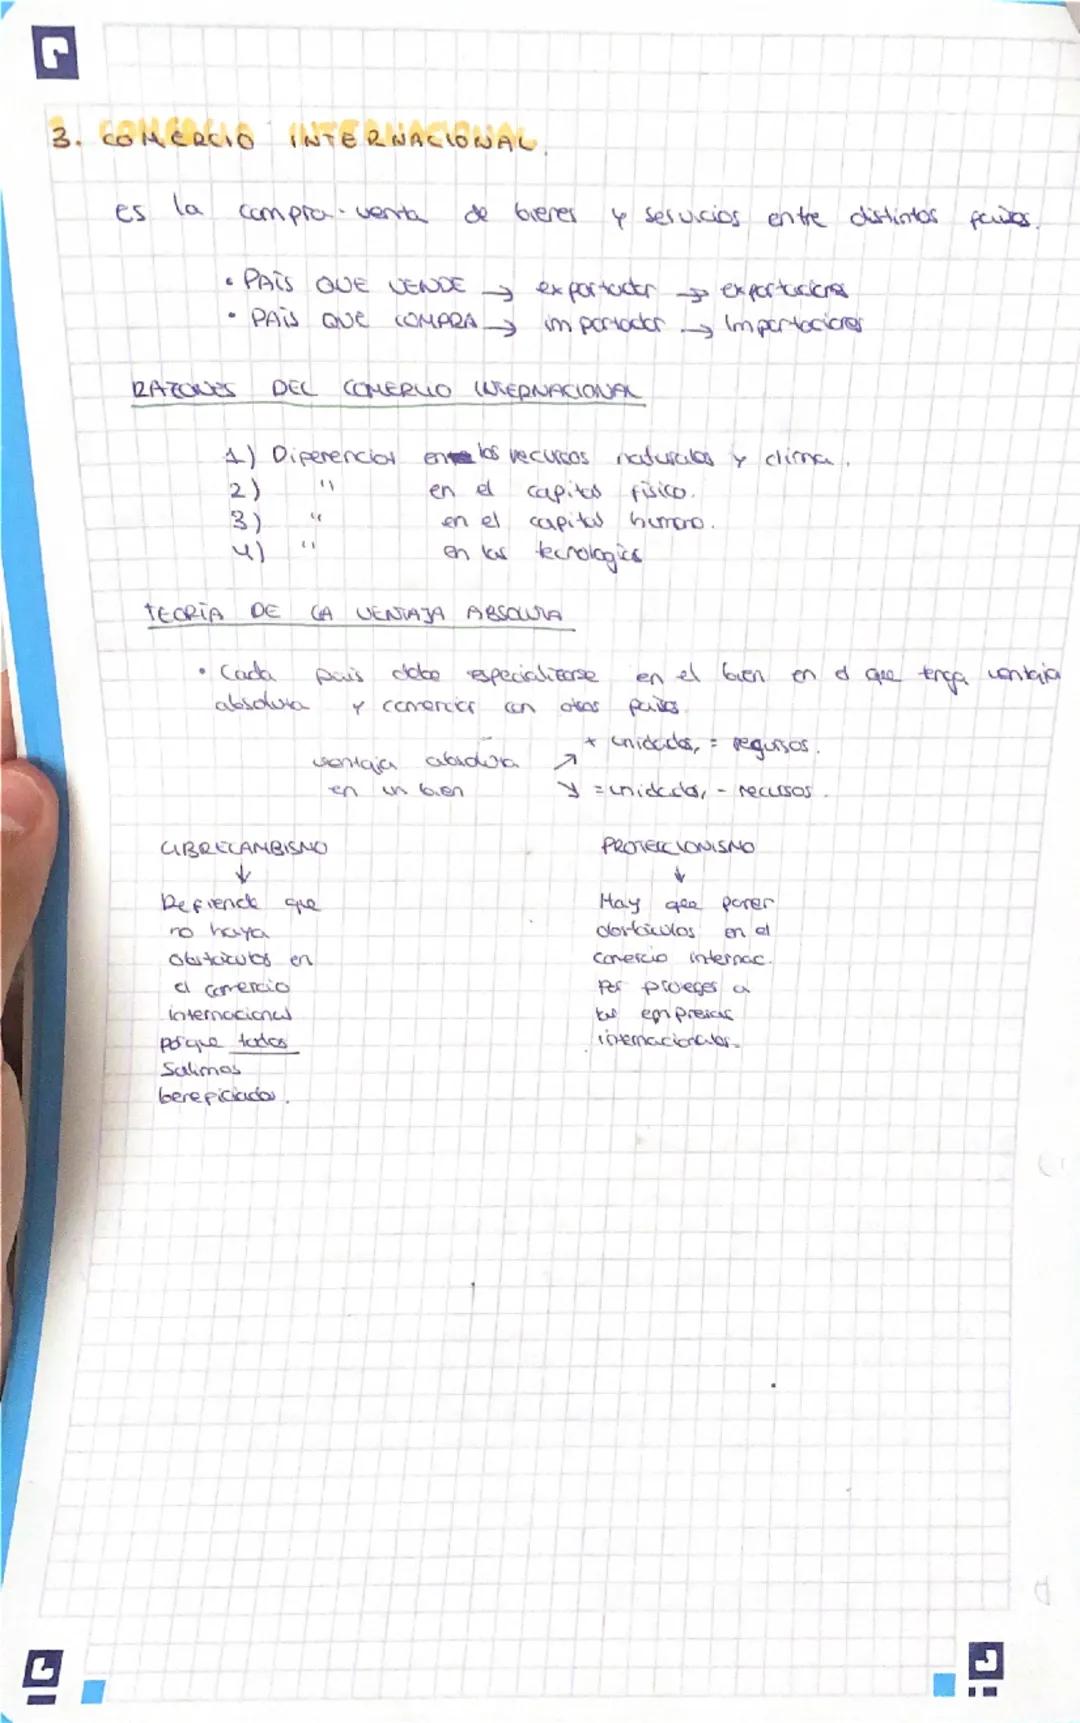 3. COMERCIO INTERNACIONAL.
es la compra-venta de bienes y servicios entre distintos países.
• PAÍS QUE VENDE → exportador → exportaciones
• PAÍS QUE COMPRA → importador → Importaciones
RAZONES DEL COMERCIO INTERNACIONAL
1) Diferencias en los recursos naturales y clima.
2) " en el capital físico.
3) " en el capital humano.
4) " en las tecnologías
TEORÍA DE LA VENTAJA ABSOLUTA
• Cada país debe especializarse en el bien en el que tenga ventaja
absoluta y comerciar con otros países.
ventaja absoluta ↗ + unidades, = recursos.
en un bien ↘ = unidades, - recursos.
LIBRECAMBISMO
↓
Defiende que
no haya
obstáculos en
el comercio
internacional
porque todos
salimos
beneficiados.
PROTECCIONISMO
↓
Hay que poner
obstáculos en el
comercio internac.
por proteger a
las empresas
internacionales.